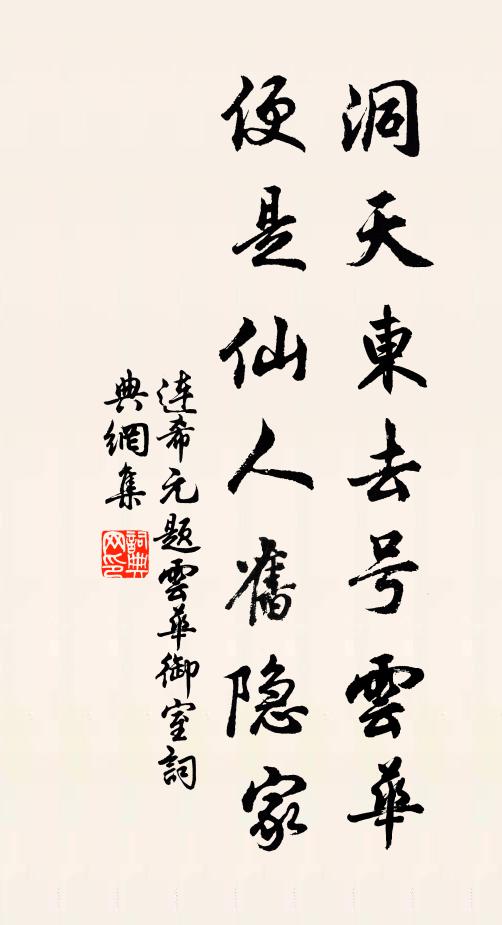 洞天東去号雲華
便是仙人舊隐家
連希元題雲華御室詞
典網集
詞典
网印